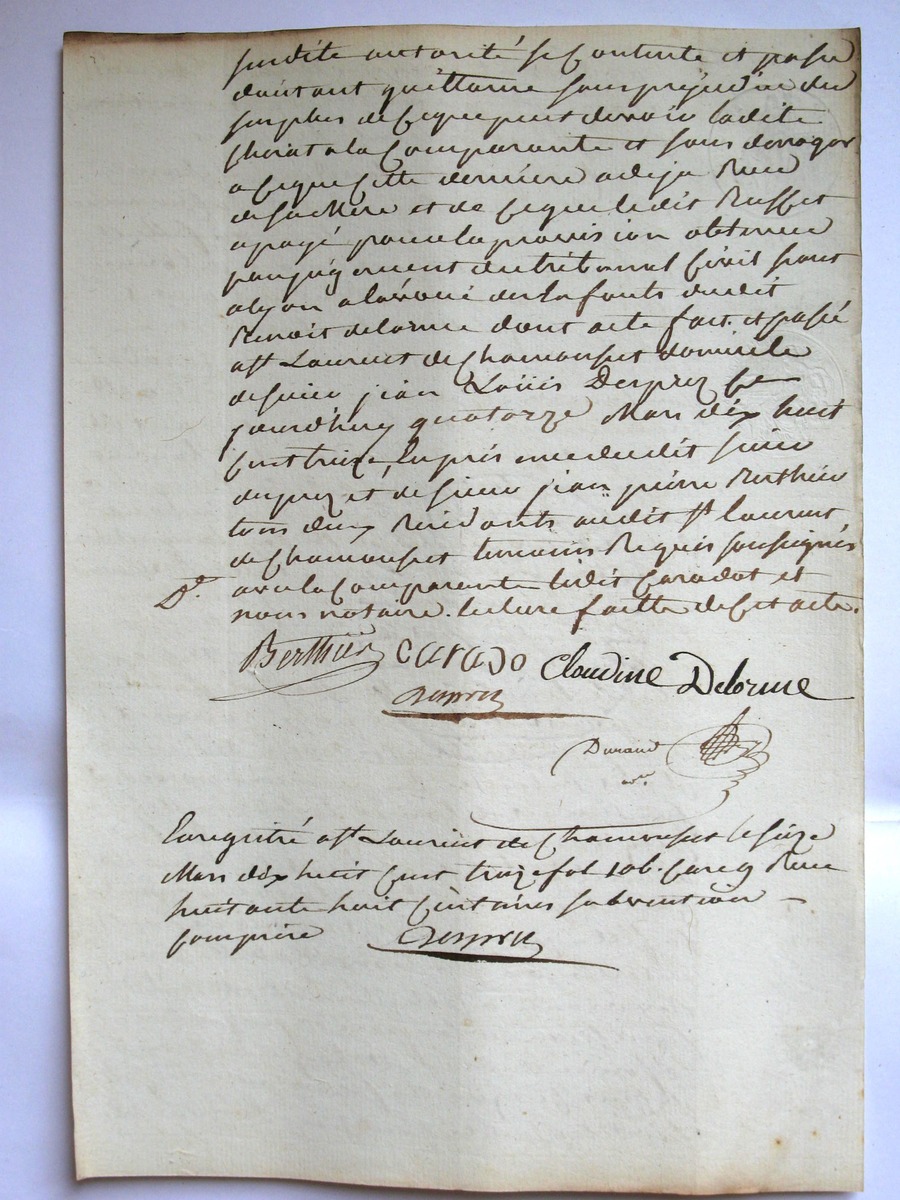 susdite autorité se contente et passe
d'autant quittance sans préjudice du
surplus de ce que peut devoir ladite
hoirie a la comparante et sans deroger
a ce que cette derniere a deja Recu
de sa Mere et de ce que ledit Russet
a payé pour la provision obtenue
par jugement du tribunal Civil seant
a lyon a l'avoué des enfants dudit
Benoit delorme dont acte fait et passé
a st Laurent de Chamousset domicile
de sieur jean Loüis Desprez ce
jourdhuy quatorze Mars dix huit
cent treize, En présence dudit sieur
desprez et de sieur jean pierre Berthier
tous deux Residents audit st laurent
de Chamousset temoins Requis soussignés
avec la Comparente ledit Caradot et
D.d nous notaire. lecture faitte de cet acte.
Berthier carado Claudine Delorme
Desprez
Durand
nre
Enregistré a st Laurent de Chamousset le seize
Mars dix huit cent treize fol 106. Reçu
huitante huit centimes subvention
comprise Desprez